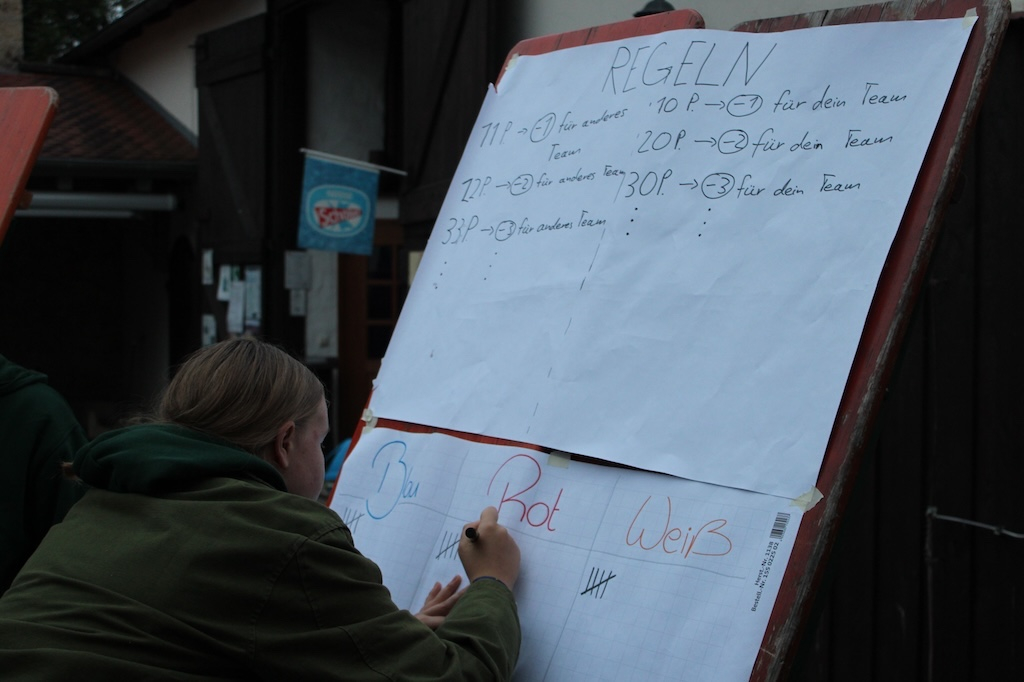 REGELN
11P. → -1 für anderes
Team
22P. → -2 für anderes Team
33P → -3 für anderes Team
10P. → -1 für dein Team
20P. → -2 für dein Team
30P. → -3 für dein Team
Blau
Rot
Weiß
Bestell.-Nr. 155 0225 02